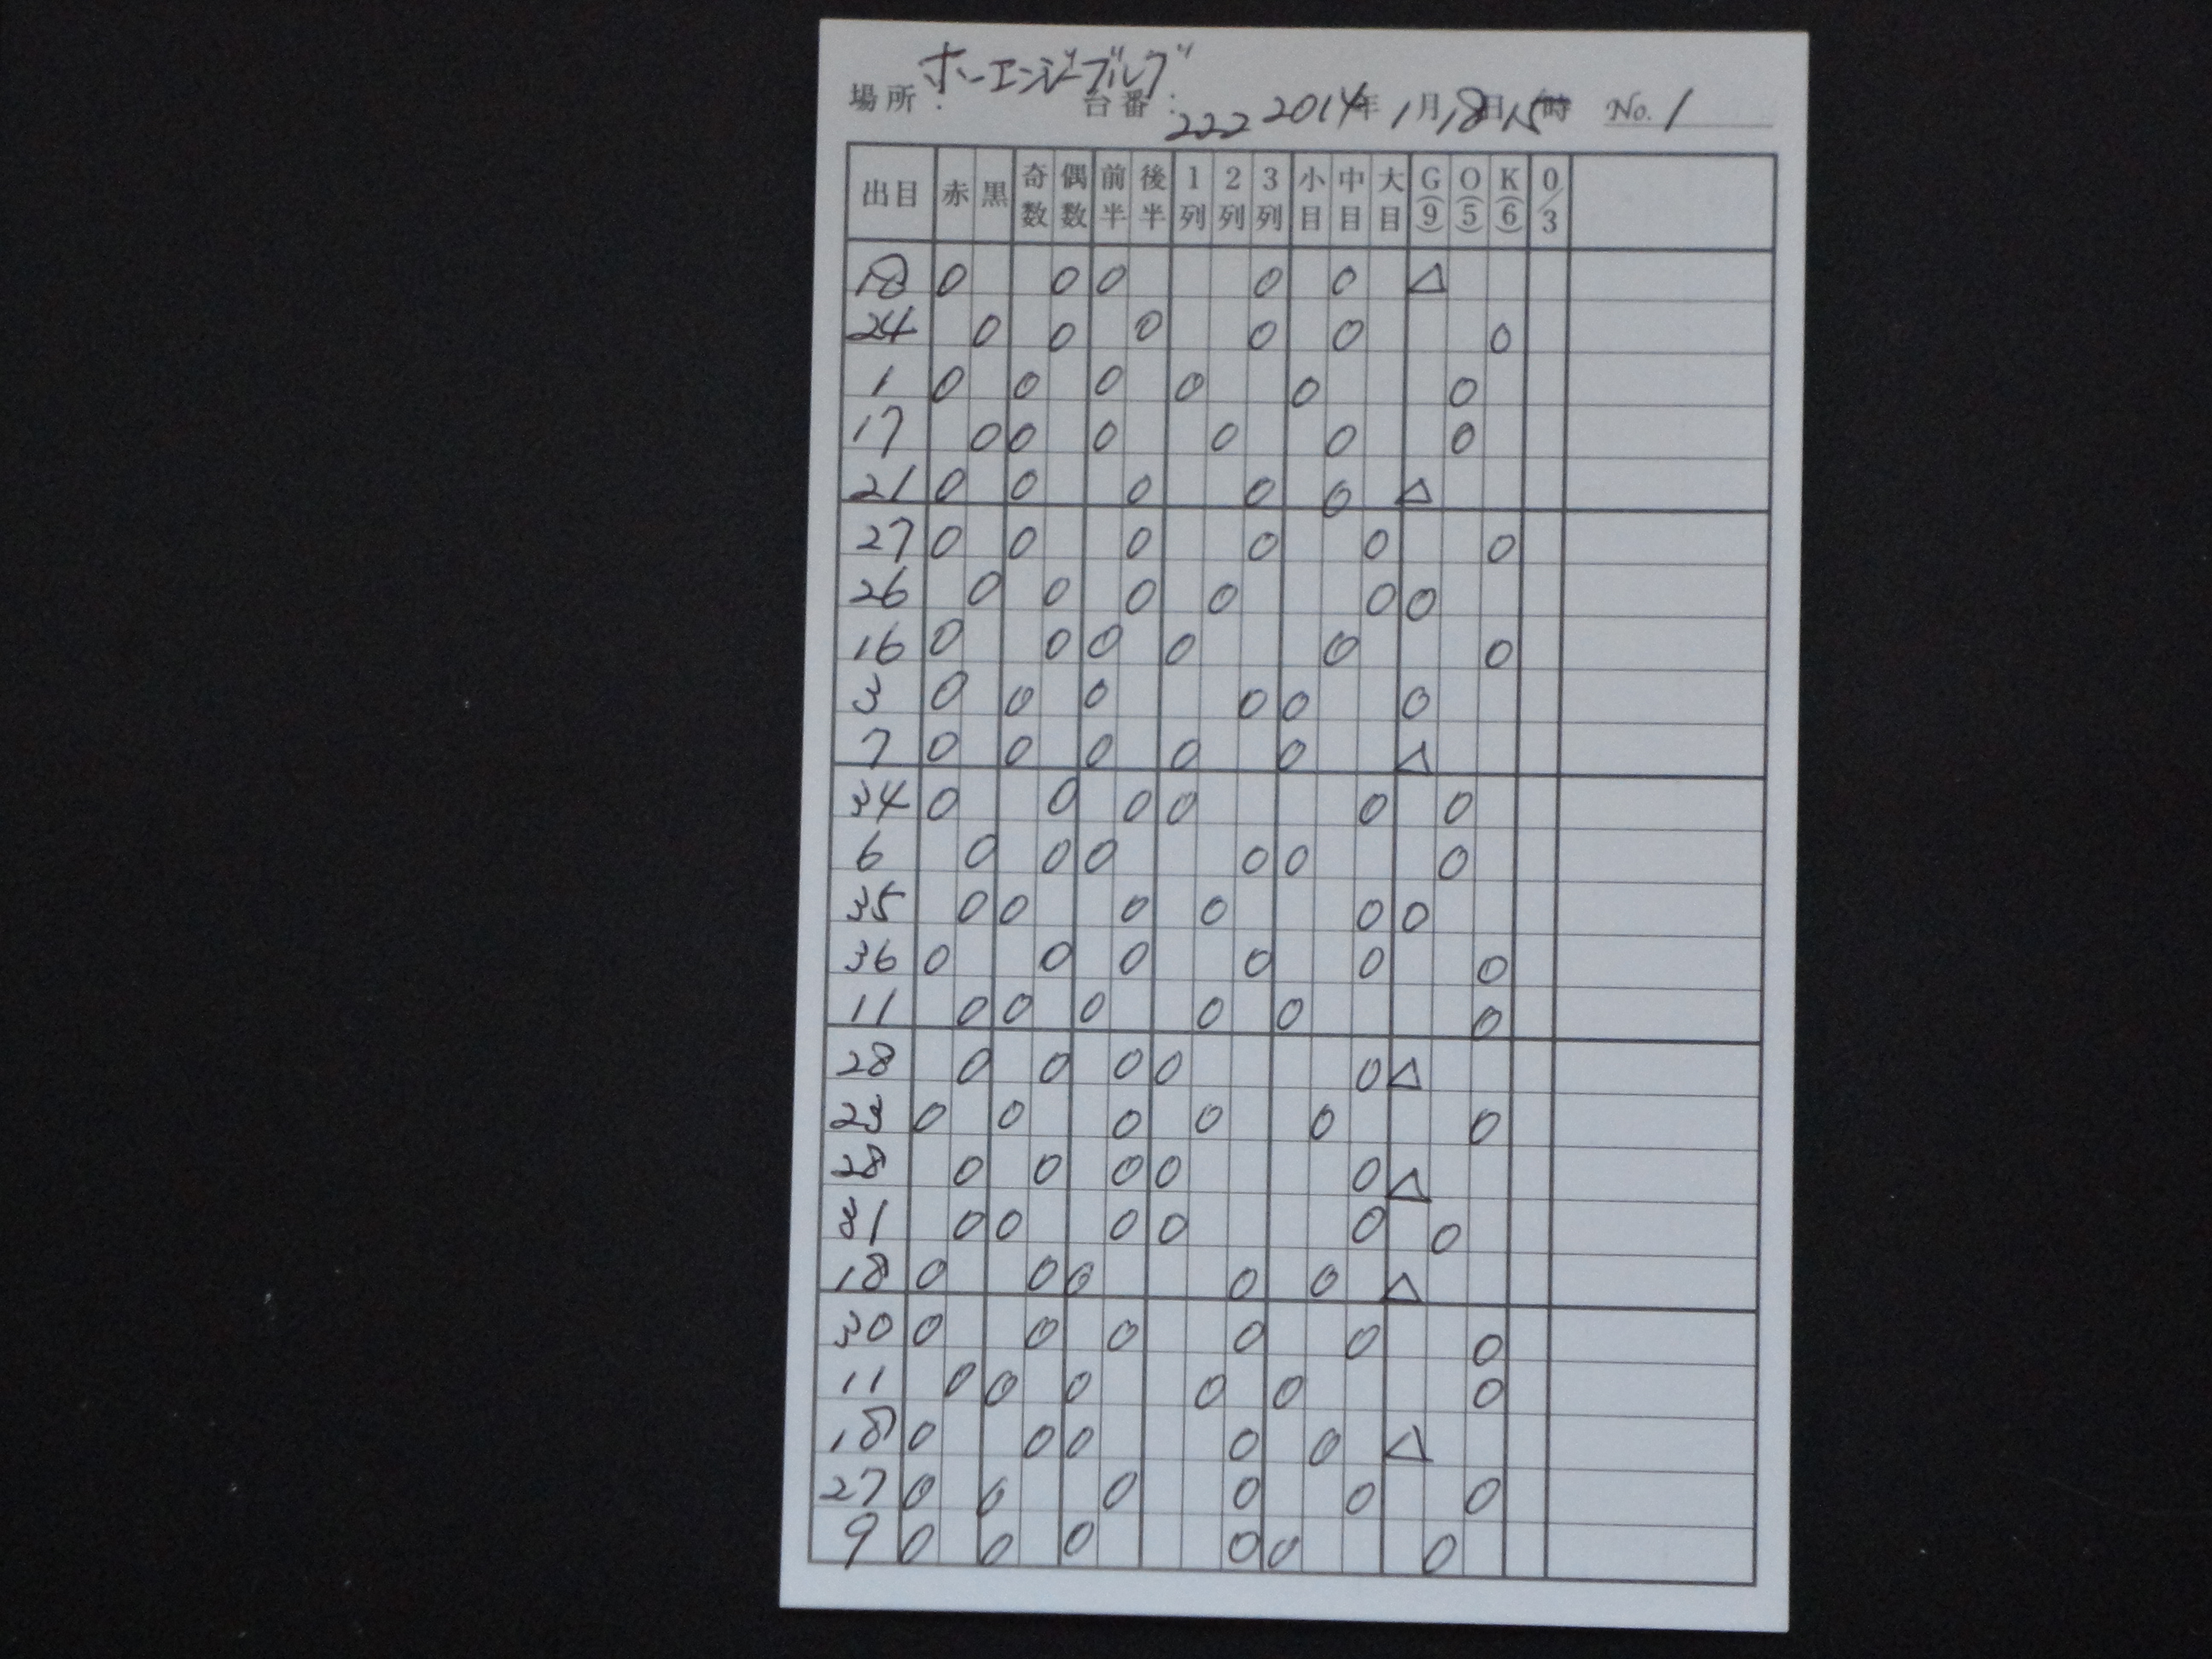 ホーエンジーブルグ
場所: 台番: 222 2014年 1月18日15時 No. 1
出目 赤 黒 奇数 偶数 前半 後半 1列 2列 3列 小目 中目 大目 G(9) O(5) K(6) 0/3
18 0 0 0 0 0 △
24 0 0 0 0 0 0
1 0 0 0 0 0 0
17 0 0 0 0 0 0
21 0 0 0 0 0 △
27 0 0 0 0 0 0
26 0 0 0 0 0 0
16 0 0 0 0 0 0
3 0 0 0 0 0 0
7 0 0 0 0 0 △
34 0 0 0 0 0 0
6 0 0 0 0 0 0
35 0 0 0 0 0 0
36 0 0 0 0 0 0
11 0 0 0 0 0 0
28 0 0 0 0 0 △
23 0 0 0 0 0 0
28 0 0 0 0 0 △
31 0 0 0 0 0 0
18 0 0 0 0 0 △
30 0 0 0 0 0 0
11 0 0 0 0 0 0
18 0 0 0 0 0 △
27 0 0 0 0 0 0
9 0 0 0 0 0 0